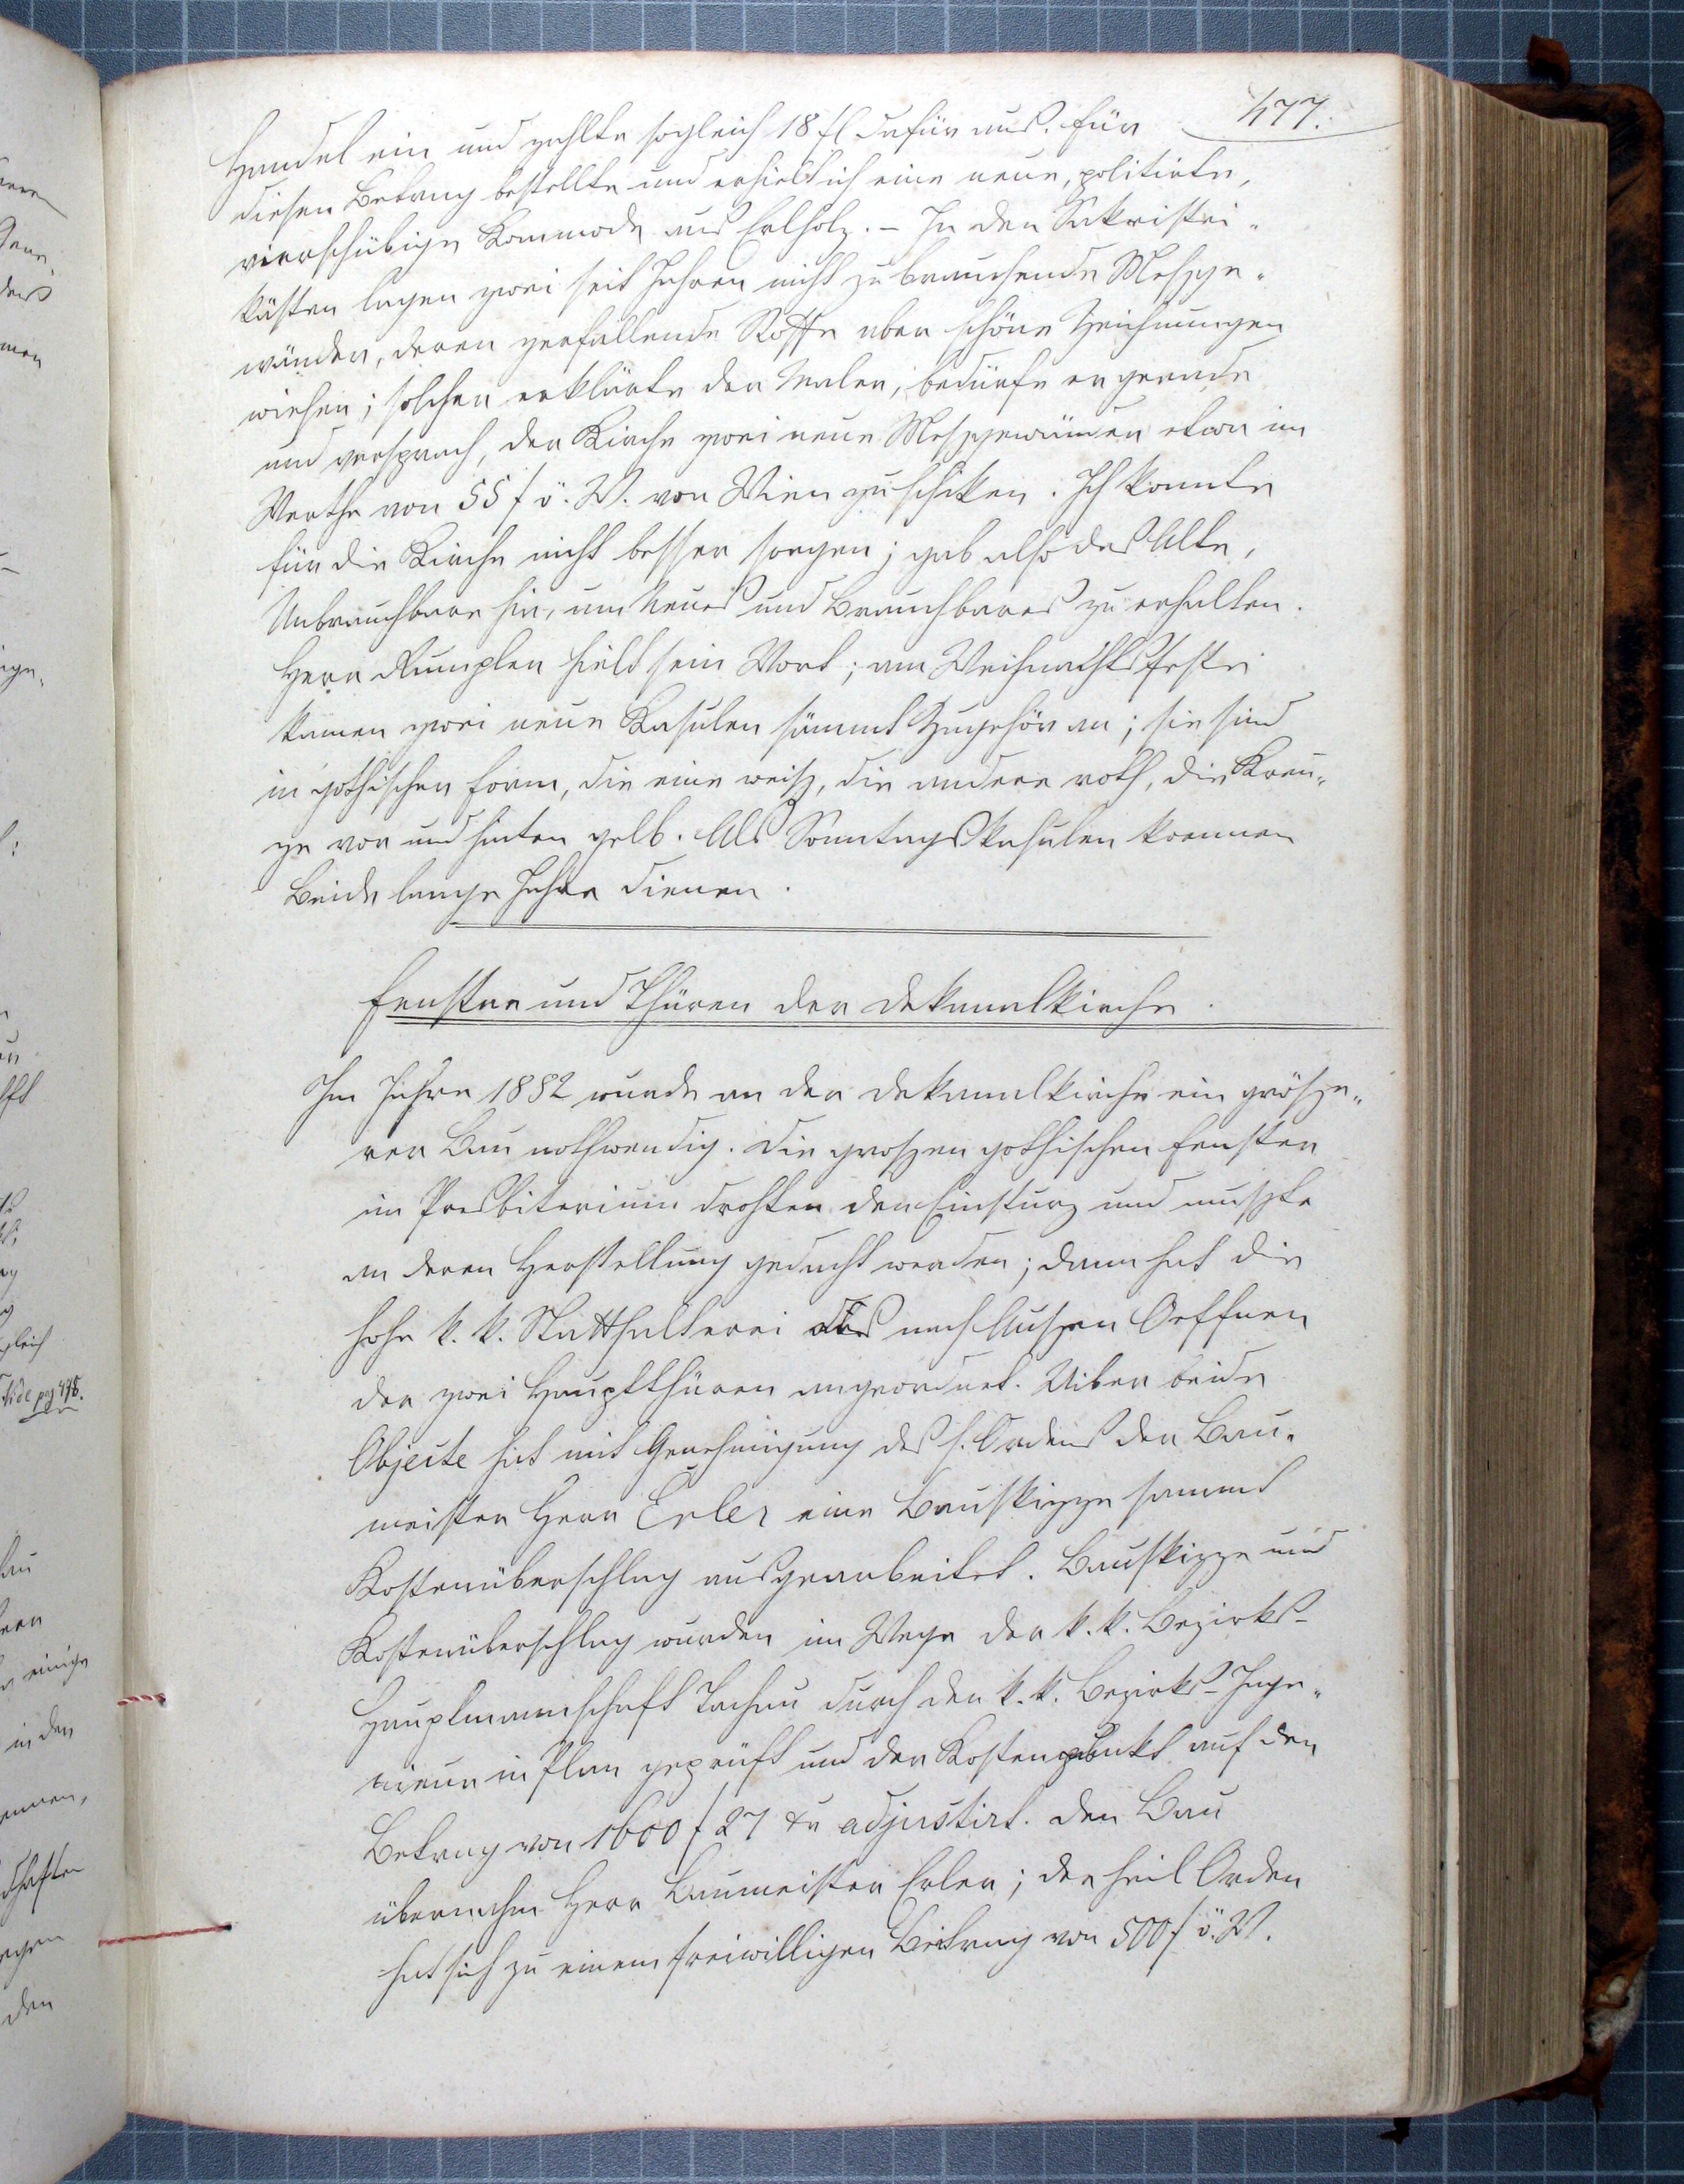 477.
Handel ein und zahlte sogleich 18 fl dafür aus. Für
diesen Betrag bestellte und erhielt ich eine neue, politirte,
vierschübige Kommode aus Erlholz. – In den Sakristei-
kästen lagen zwei seit Jahren nicht zu brauchende Meszge-
wänder, deren zerfallende Stoffe aber schöne Zeichnungen
wiesen; solcher erklärte der Maler, bedürfe er gerade
und versprach, der Kirche zwei neue Meszgewänder etwa im
Werthe von 55 f ö. W. von Wien zu schiken. Ich konnte
für die Kirche nicht besser sorgen; gab also das Alte,
Unbrauchbare hin, um Neues und Brauchbares zu erhalten.
Herr Rumpler hielt sein Wort; am Weihnachtsfeste
kamen zwei neue Kasulen sammt Zugehör an; sie sind
in gothischer Form, die eine weisz, die andere roth, die Kreu-
ze vor und hinten gelb. Als Sonntagskasulen koennen
Beide lange Jahre dienen.
Fenster und Thüren der Dekanalkirche.
Im Jahre 1882 wurde an der Dekanalkirche ein grösze-
rer Bau nothwendig. Die groszen gothischen Fenster
im Presbiterium drohten den Einsturz und muszte
an deren Herstellung gedacht werden; dann hat die
hohe k. k. Statthalterei das nach Auszen Oeffnen
der zwei Hauptthüren angeordnet. Uiber beide
Objecte hat mit Genehmigung des h. Ordens der Bau-
meister Herr Erler eine Bauskizze sammt
Kostenüberschlag ausgearbeitet. Bauskizze und
Kostenüberschlag wurden im Wege der k. k. Bezirks-
Hauptmannschaft Tachau durch den k. k. Bezirks-Inge-
nieur in Plan geprüft und der Kostenpunkt auf den
Betrag von 1600 f 27 kr adjustirt. Den Bau
übernahm Herr Baumeister Erler; der heil Orden
hat sich zu einem freiwilligen Beitrag von 500 f ö. W.
Vide pag 478.